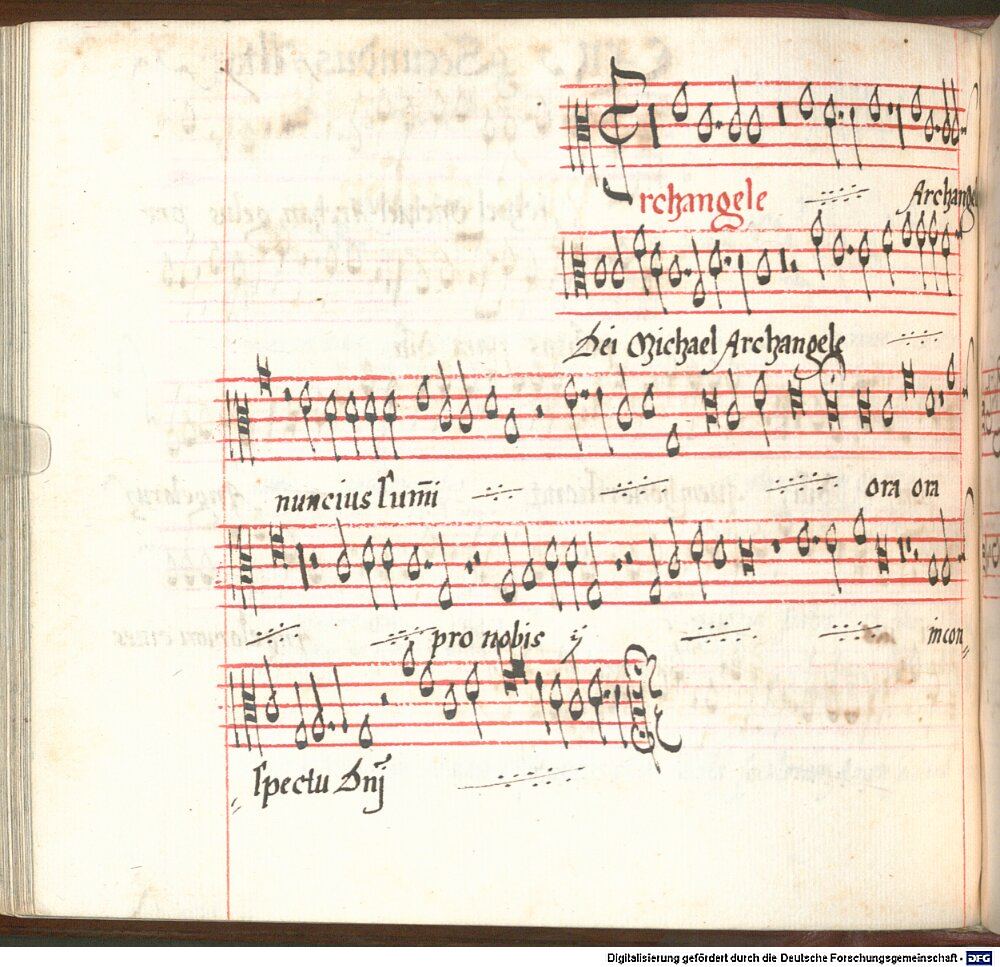 Archangele Archangele
Dei Michael Archangele
nuncius sum̄i ora ora
pro nobis ij incon„
„spectu Dnj
Digitalisierung gefördert durch die Deutsche Forschungsgemeinschaft - DFG